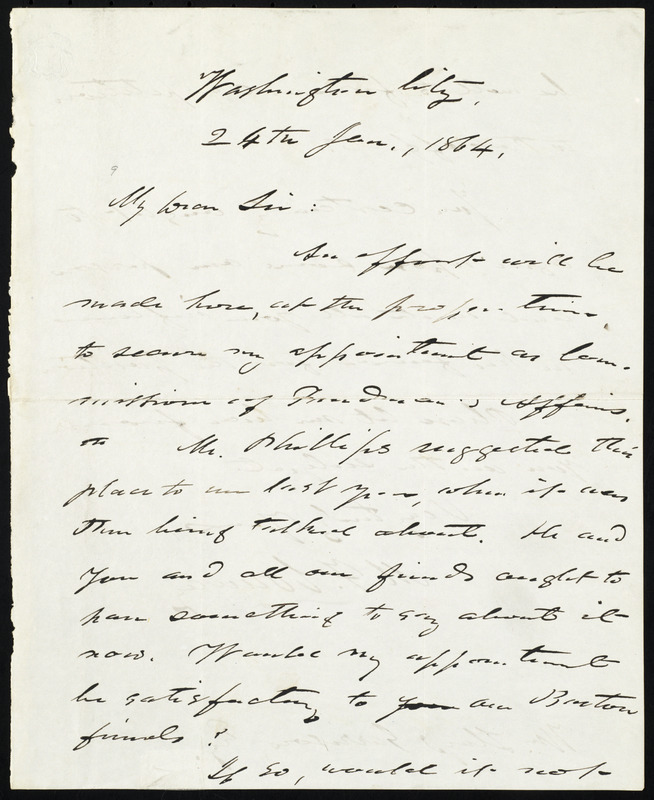 Washington City,
24th Jan., 1864.
My Dear Sir :
An effort will be
made here, at the proper time,
to secure my appointment as Com-
missioner of Freedman's Affairs.
Mr. Phillips suggested this
place to me last year, when it was
then being talked about. He and
you and all our friends ought to
have something to say about it
now. Would my appointment
be satisfactory to you our Boston
friends ?
If so, would it not